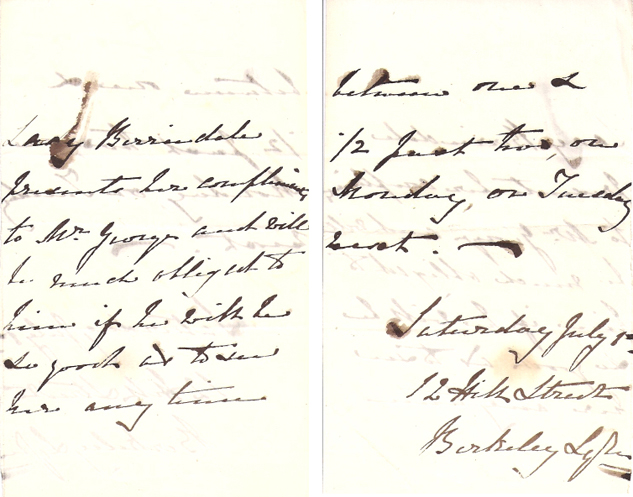 Lady Berriedale
presents her compliments
to Mr George and will
be much obliged to
him if he will be
so good as to see
her any time
between one &
1/2 past two, on
Monday, or Tuesday
next. —
Saturday July 1st
12 Hill Street
Berkeley Sqre